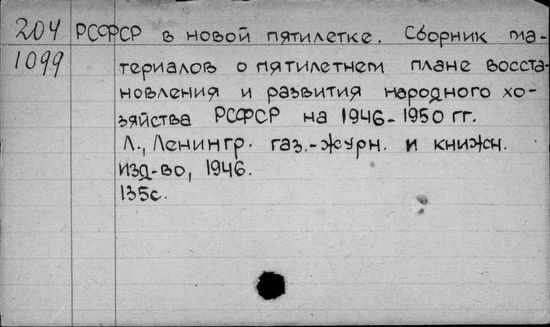 204 РСФСР в новой пятилетке. Сборник ма-
1099 териалов о пятилетнем плане восста-
новления и развития народного хо-
зяйства РСФСР на 1946-1950 гг.
Л., Ленингр. газ.-журн. и книжн.
изд-во, 1946.
135с.